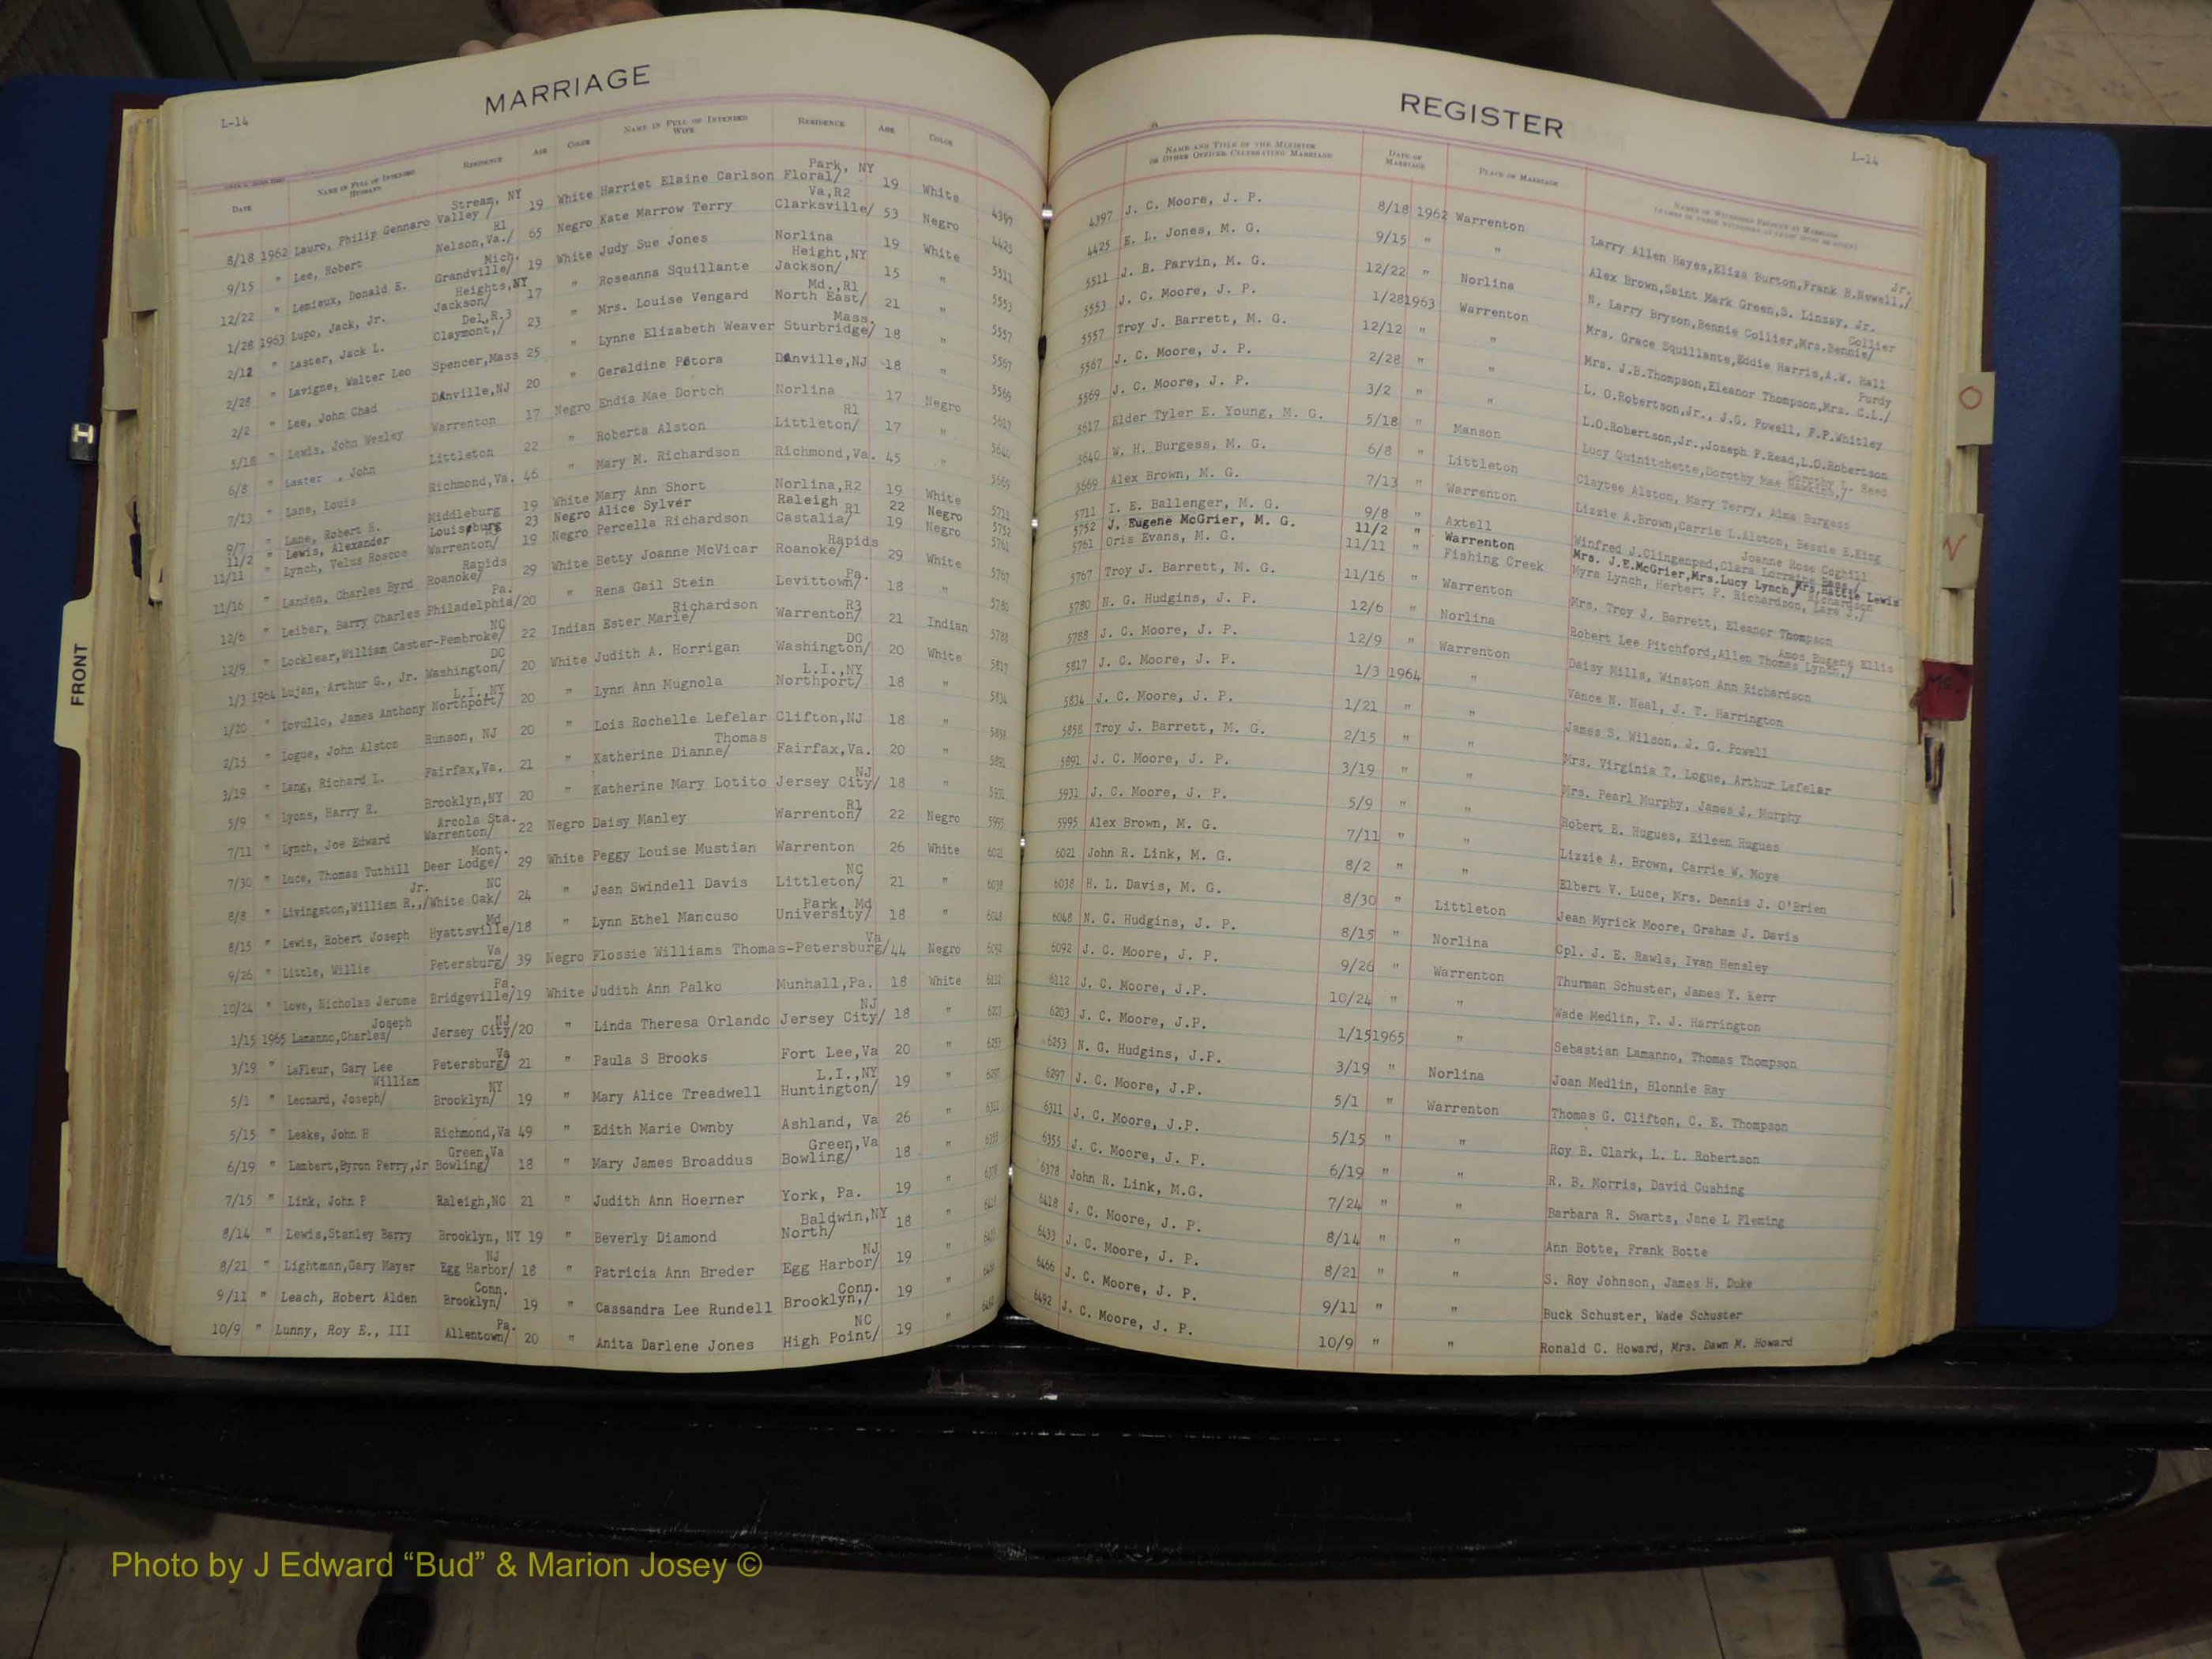 MARRIAGE
L-14
DATE NAME IN FULL OF INTENDED HUSBAND RESIDENCE AGE COLOR NAME IN FULL OF INTENDED WIFE RESIDENCE AGE COLOR
8/18 1962 Lauro, Philip Gennaro Valley/ Stream, NY 19 White Harriet Elaine Carlson Floral/ Park, NY 19 White 4397
9/15 " Lee, Robert Nelson,Va./ R1 65 Negro Kate Marrow Terry Clarksville/ Va,R2 53 Negro 4425
12/22 " Lemieux, Donald E. Grandville/ Mich. 19 White Judy Sue Jones Norlina 19 White 5511
1/28 1963 Lupo, Jack, Jr. Jackson/ Heights,NY 17 " Roseanna Squillante Jackson/ Height,NY 15 " 5553
2/12 " Laster, Jack L. Claymont,/ Del,R.3 23 " Mrs. Louise Vengard North East/ Md.,R1 21 " 5557
2/28 " Lavigne, Walter Leo Spencer,Mass 25 " Lynne Elizabeth Weaver Sturbridge/ Mass. 18 " 5567
2/2 " Lee, John Chad Danville,NJ 20 " Geraldine Petora Danville,NJ 18 " 5569
5/18 " Lewis, John Wesley Warrenton 17 Negro Endia Mae Dortch Norlina 17 Negro 5617
6/8 " Laster , John Littleton 22 " Roberta Alston Littleton/ R1 17 " 5640
7/13 " Lane, Louis Richmond,Va. 46 " Mary M. Richardson Richmond,Va. 45 " 5669
9/7 " Lane, Robert H. Middleburg 19 White Mary Ann Short Norlina,R2 19 White 5711
11/2 " Lewis, Alexander Louisburg 23 Negro Alice Sylver Raleigh 22 Negro 5752
11/11 " Lynch, Velus Roscoe Warrenton/ R3 19 Negro Percella Richardson Castalia/ R1 19 Negro 5761
11/16 " Landen, Charles Byrd Roanoke/ Rapids 29 White Betty Joanne McVicar Roanoke/ Rapids 29 White 5767
12/6 " Leiber, Barry Charles Philadelphia/ Pa. 20 " Rena Gail Stein Levittown/ Pa. 18 " 5780
12/9 " Locklear,William Caster-Pembroke/ NC 22 Indian Ester Marie/ Richardson Warrenton/ R3 21 Indian 5788
1/3 1964 Lujan, Arthur G., Jr. Washington/ DC 20 White Judith A. Horrigan Washington/ DC 20 White 5817
1/20 " Iovullo, James Anthony Northport/ L.I.,NY 20 " Lynn Ann Mugnola Northport/ L.I.,NY 18 " 5834
2/15 " Logue, John Alston Runson, NJ 20 " Lois Rochelle Lefelar Clifton,NJ 18 " 5858
3/19 " Lang, Richard L. Fairfax,Va. 21 " Katherine Dianne/ Thomas Fairfax,Va. 20 " 5891
5/9 " Lyons, Harry R. Brooklyn,NY 20 " Katherine Mary Lotito Jersey City/ NJ 18 " 5931
7/11 " Lynch, Joe Edward Warrenton/ Arcola Sta. 22 Negro Daisy Manley Warrenton/ R1 22 Negro 5995
7/30 " Luce, Thomas Tuthill Deer Lodge/ Mont. 29 White Peggy Louise Mustian Warrenton 26 White 6021
8/8 " Livingston,William R.,/ Jr. White Oak/ NC 24 " Jean Swindell Davis Littleton/ NC 21 " 6038
8/15 " Lewis, Robert Joseph Hyattsville/ Md 18 " Lynn Ethel Mancuso University/ Park, Md 18 " 6048
9/26 " Little, Willie Petersburg/ Va 39 Negro Flossie Williams Thomas-Petersburg/ Va 44 Negro 6092
10/24 " Lowe, Nicholas Jerome Bridgeville/ Pa. 19 White Judith Ann Palko Munhall,Pa. 18 White 6112
1/15 1965 Lamanno,Charles/ Joseph Jersey City/ NJ 20 " Linda Theresa Orlando Jersey City/ NJ 18 " 6203
3/19 " LaFleur, Gary Lee Petersburg/ Va 21 " Paula S Brooks Fort Lee,Va 20 " 6253
5/1 " Leonard, Joseph/ William Brooklyn/ NY 19 " Mary Alice Treadwell Huntington/ L.I.,NY 19 " 6297
5/15 " Leake, John H Richmond,Va 49 " Edith Marie Ownby Ashland, Va 26 " 6311
6/19 " Lambert,Byron Perry,Jr Bowling/ Green,Va 18 " Mary James Broaddus Bowling/ Green,Va 18 " 6355
7/15 " Link, John P Raleigh,NC 21 " Judith Ann Hoerner York, Pa. 19 " 6378
8/14 " Lewis,Stanley Barry Brooklyn, NY 19 " Beverly Diamond North/ Baldwin,NY 18 " 6418
8/21 " Lightman,Gary Mayer Egg Harbor/ NJ 18 " Patricia Ann Breder Egg Harbor/ NJ 19 " 6433
9/11 " Leach, Robert Alden Brooklyn/ Conn. 19 " Cassandra Lee Rundell Brooklyn,/ Conn. 19 " 6466
10/9 " Lunny, Roy E., III Allentown/ Pa. 20 " Anita Darlene Jones High Point/ NC 19 " 6492
REGISTER
L-14
NAME AND TITLE OF THE MINISTER OR OTHER OFFICER CELEBRATING MARRIAGE DATE OF MARRIAGE PLACE OF MARRIAGE NAMES OF WITNESSES PRESENT AT MARRIAGE
4397 J. C. Moore, J. P. 8/18 1962 Warrenton Larry Allen Hayes,Eliza Burton,Frank B.Newell,/ Jr.
4425 E. L. Jones, M. G. 9/15 " " Alex Brown,Saint Mark Green,S. Linzay, Jr.
5511 J. B. Parvin, M. G. 12/22 " Norlina N. Larry Bryson,Bennie Collier,Mrs.Bennie/ Collier
5553 J. C. Moore, J. P. 1/28 1963 Warrenton Mrs. Grace Squillante,Eddie Harris,A.W. Hall
5557 Troy J. Barrett, M. G. 12/12 " " Mrs. J.B.Thompson,Eleanor Thompson,Mrs. C.L./ Purdy
5567 J. C. Moore, J. P. 2/28 " " L. O.Robertson,Jr., J.G. Powell, F.P.Whitley
5569 J. C. Moore, J. P. 3/2 " " L.O.Robertson,Jr.,Joseph F.Read,L.O.Robertson
5617 Elder Tyler E. Young, M. G. 5/18 " Manson Lucy Quinitchette,Dorothy Mae Hawkins,/ Dorothy L. Reed
5640 W. H. Burgess, M. G. 6/8 " Littleton Claytee Alston, Mary Terry, Alma Burgess
5669 Alex Brown, M. G. 7/13 " Warrenton Lizzie A.Brown,Carrie L.Alston, Bessie E.King
5711 I. E. Ballenger, M. G. 9/8 " Axtell Winfred J.Clingenped,Clara Lorraine Bass / Joanne Rose Coghill
5752 J. Eugene McGrier, M. G. 11/2 " Warrenton Mrs. J.E.McGrier,Mrs.Lucy Lynch, Mrs.Hattie Lewis
5761 Oris Evans, M. G. 11/11 " Fishing Creek Myra Lynch, Herbert P. Richardson, Lara J./ Richardson
5767 Troy J. Barrett, M. G. 11/16 " Warrenton Mrs. Troy J. Barrett, Eleanor Thompson
5780 N. G. Hudgins, J. P. 12/6 " Norlina Robert Lee Pitchford,Allen Thomas Lynch,/ Amos Eugene Ellis
5788 J. C. Moore, J. P. 12/9 " Warrenton Daisy Mills, Winston Ann Richardson
5817 J. C. Moore, J. P. 1/3 1964 " Vance N. Neal, J. T. Harrington
5834 J. C. Moore, J. P. 1/21 " " James S. Wilson, J. G. Powell
5858 Troy J. Barrett, M. G. 2/15 " " Mrs. Virginia T. Logue, Arthur Lefelar
5891 J. C. Moore, J. P. 3/19 " " Mrs. Pearl Murphy, James J. Murphy
5931 J. C. Moore, J. P. 5/9 " " Robert E. Hugues, Eileen Hugues
5995 Alex Brown, M. G. 7/11 " " Lizzie A. Brown, Carrie W. Moye
6021 John R. Link, M. G. 8/2 " " Elbert V. Luce, Mrs. Dennis J. O'Brien
6038 H. L. Davis, M. G. 8/30 " Littleton Jean Myrick Moore, Graham J. Davis
6048 N. G. Hudgins, J. P. 8/15 " Norlina Cpl. J. E. Rawls, Ivan Hensley
6092 J. C. Moore, J. P. 9/26 " Warrenton Thurman Schuster, James Y. Kerr
6112 J. C. Moore, J.P. 10/24 " " Wade Medlin, T. J. Harrington
6203 J. C. Moore, J.P. 1/15 1965 " Sebastian Lamanno, Thomas Thompson
6253 N. G. Hudgins, J.P. 3/19 " Norlina Joan Medlin, Blonnie Ray
6297 J. C. Moore, J.P. 5/1 " Warrenton Thomas G. Clifton, C. E. Thompson
6311 J. C. Moore, J.P. 5/15 " " Roy B. Clark, L. L. Robertson
6355 J. C. Moore, J. P. 6/19 " " R. B. Morris, David Cushing
6378 John R. Link, M.G. 7/24 " " Barbara R. Swartz, Jane L Fleming
6418 J. C. Moore, J. P. 8/14 " " Ann Botte, Frank Botte
6433 J. C. Moore, J. P. 8/21 " " S. Roy Johnson, James H. Duke
6466 J. C. Moore, J. P. 9/11 " " Buck Schuster, Wade Schuster
6492 J. C. Moore, J. P. 10/9 " " Ronald C. Howard, Mrs. Dawn M. Howard
FRONT
O
N
Mc
Photo by J Edward “Bud” & Marion Josey ©